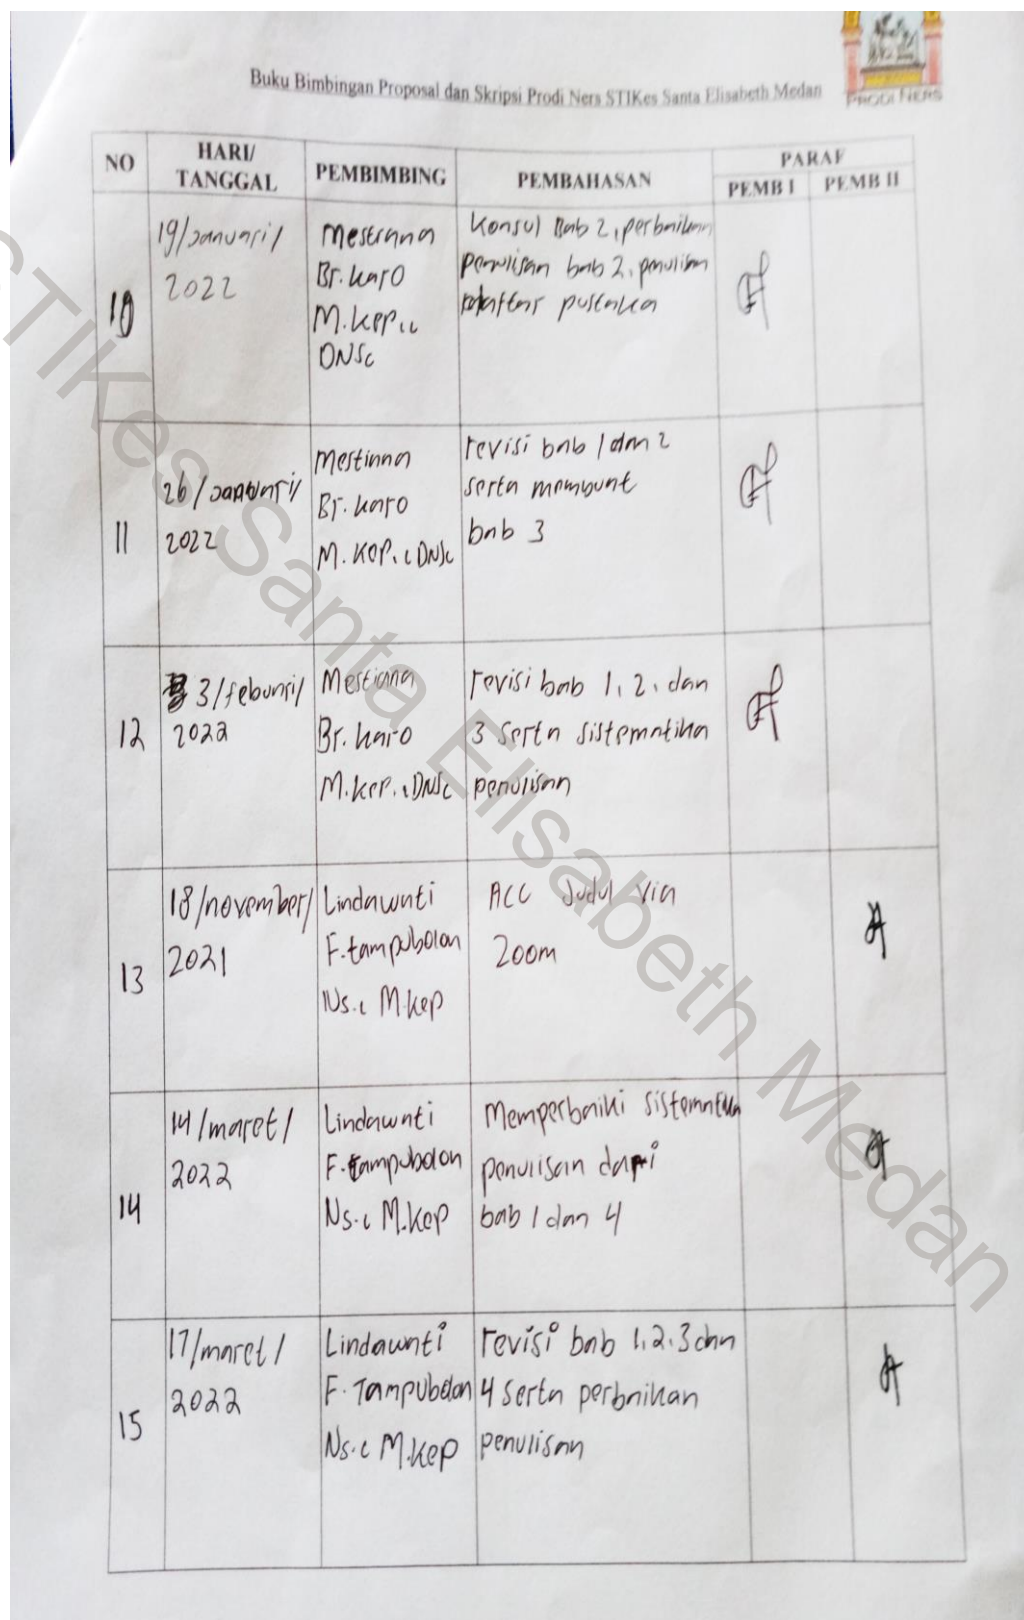 Buku Bimbingan Proposal dan Skripsi Prodi Ners STIKes Santa Elisabeth Medan
PRODI NERS
NO HARI/ TANGGAL PEMBIMBING PEMBAHASAN PARAF
PEMB I PEMB II
10
19/Januari/
2022
Mestiana
Br. Karo
M.Kep.,
DNSc
Konsul Bab 2, perbaikan
penulisan bab 2, penulisan
daftar pustaka
11
26/Januari/
2022
Mestiana
Br. Karo
M. Kep., DNSc
revisi bab 1 dan 2
serta membuat
bab 3
12
3/februari/
2022
Mestiana
Br. Karo
M.Kep., DNSc
revisi bab 1, 2, dan
3 serta sistematika
penulisan
13
18/november/
2021
Lindawati
F. tampubolon
Ns., M.Kep
ACC Judul Via
zoom
14
14/maret/
2022
Lindawati
F. tampubolon
Ns., M.Kep
Memperbaiki sistematika
penulisan dari
bab 1 dan 4
15
17/maret/
2022
Lindawati
F. Tampubolon
Ns., M.Kep
revisi bab 1, 2, 3 dan
4 serta perbaikan
penulisan
STIKes Santa Elisabeth Medan